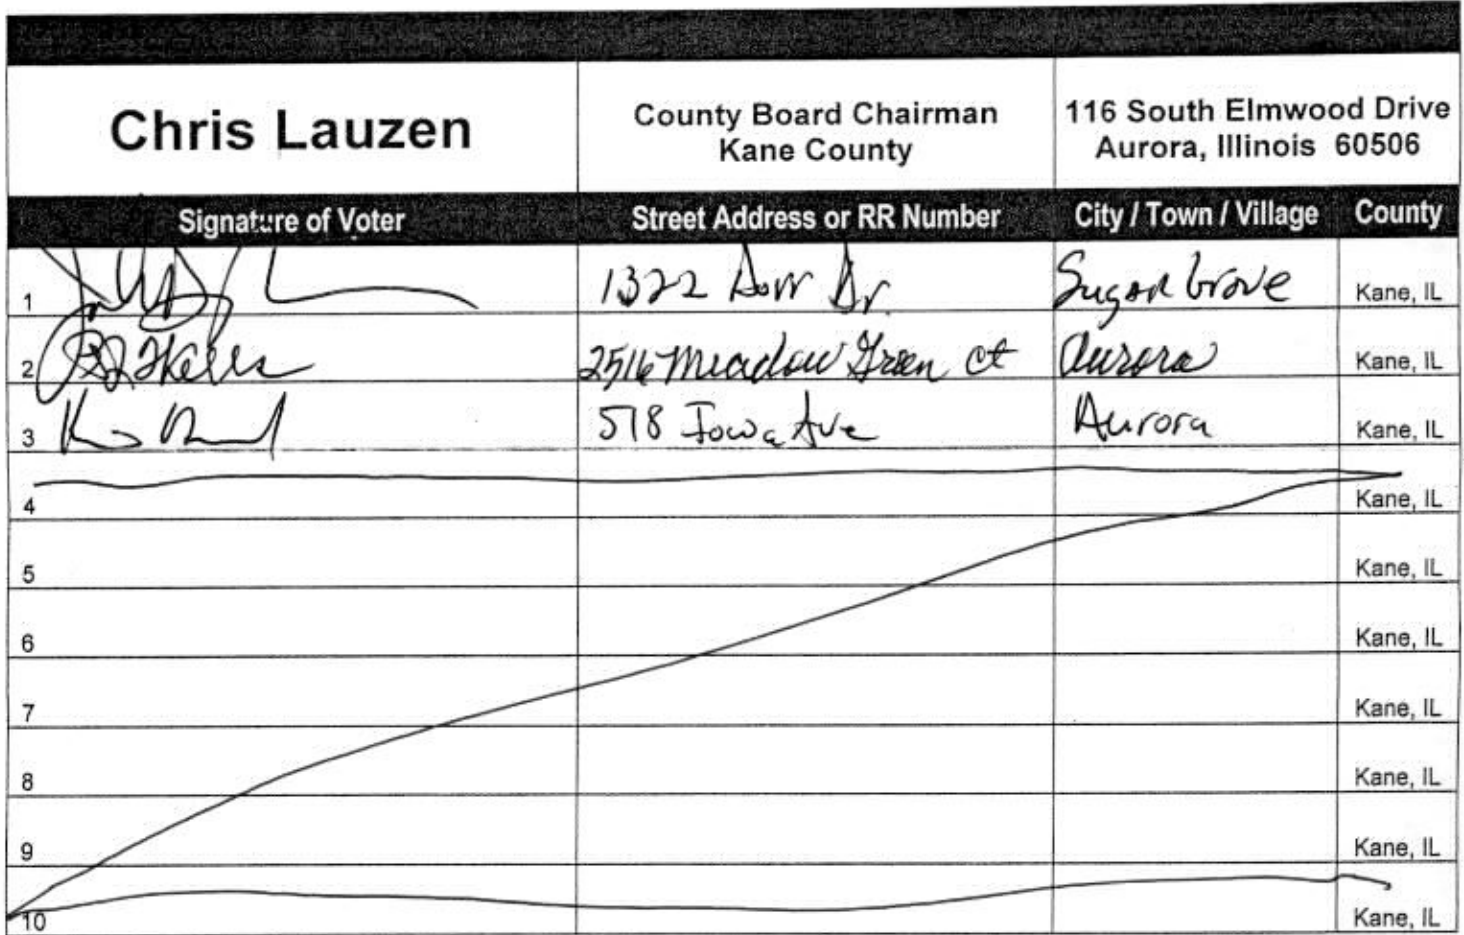 Chris Lauzen
County Board Chairman
Kane County
116 South Elmwood Drive
Aurora, Illinois 60506
Signature of Voter Street Address or RR Number City / Town / Village County
1 1322 Dorr Dr. Sugar Grove Kane, IL
2 2516 Meadow Green ct Aurora Kane, IL
3 518 Iowa Ave Aurora Kane, IL
4 Kane, IL
5 Kane, IL
6 Kane, IL
7 Kane, IL
8 Kane, IL
9 Kane, IL
10 Kane, IL